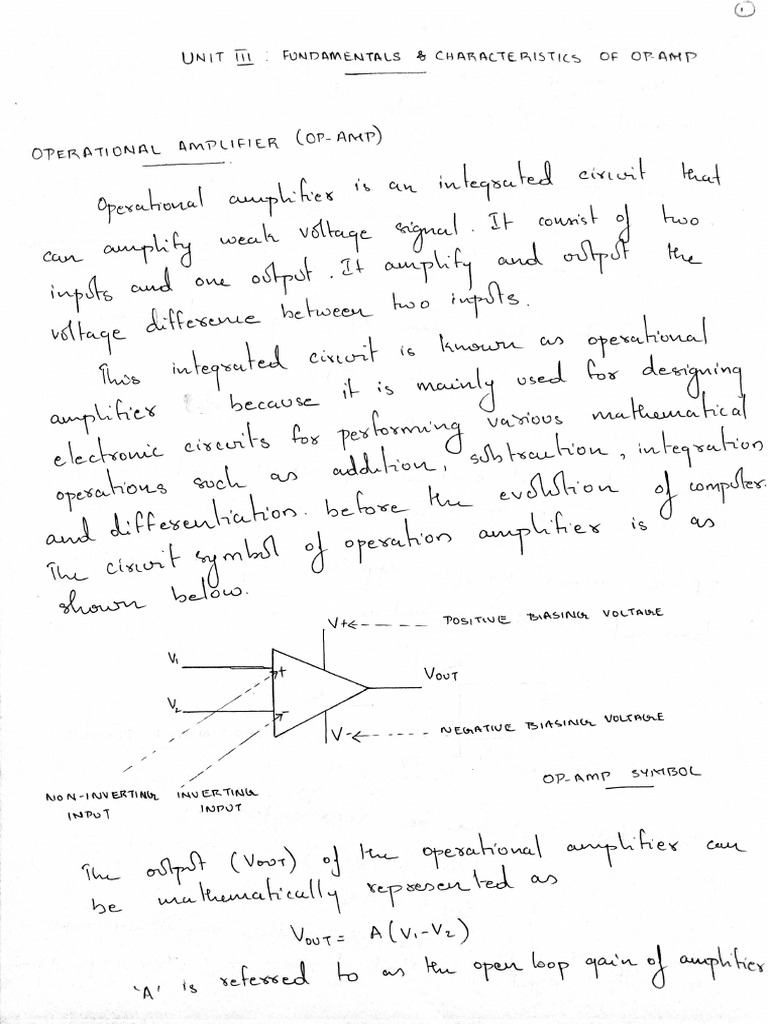 1
UNIT III : FUNDAMENTALS & CHARACTERISTICS OF OP-AMP
OPERATIONAL AMPLIFIER (OP-AMP)
Operational amplifier is an integrated circuit that
can amplify weak voltage signal. It consist of two
inputs and one output. It amplify and output the
voltage difference between two inputs.
This integrated circuit is known as operational
amplifier because it is mainly used for designing
electronic circuits for performing various mathematical
operations such as addition, subtraction, integration
and differentiation. before the evolution of computer.
The circuit symbol of operation amplifier is as
shown below.
V+ POSITIVE BIASING VOLTAGE
V1
+
VOUT
V2
-
V- NEGATIVE BIASING VOLTAGE
OP-AMP SYMBOL
NON-INVERTING INPUT
INVERTING INPUT
The output (VOUT) of the operational amplifier can
be mathematically represented as
VOUT = A(V1-V2)
'A' is referred to as the open loop gain of amplifier